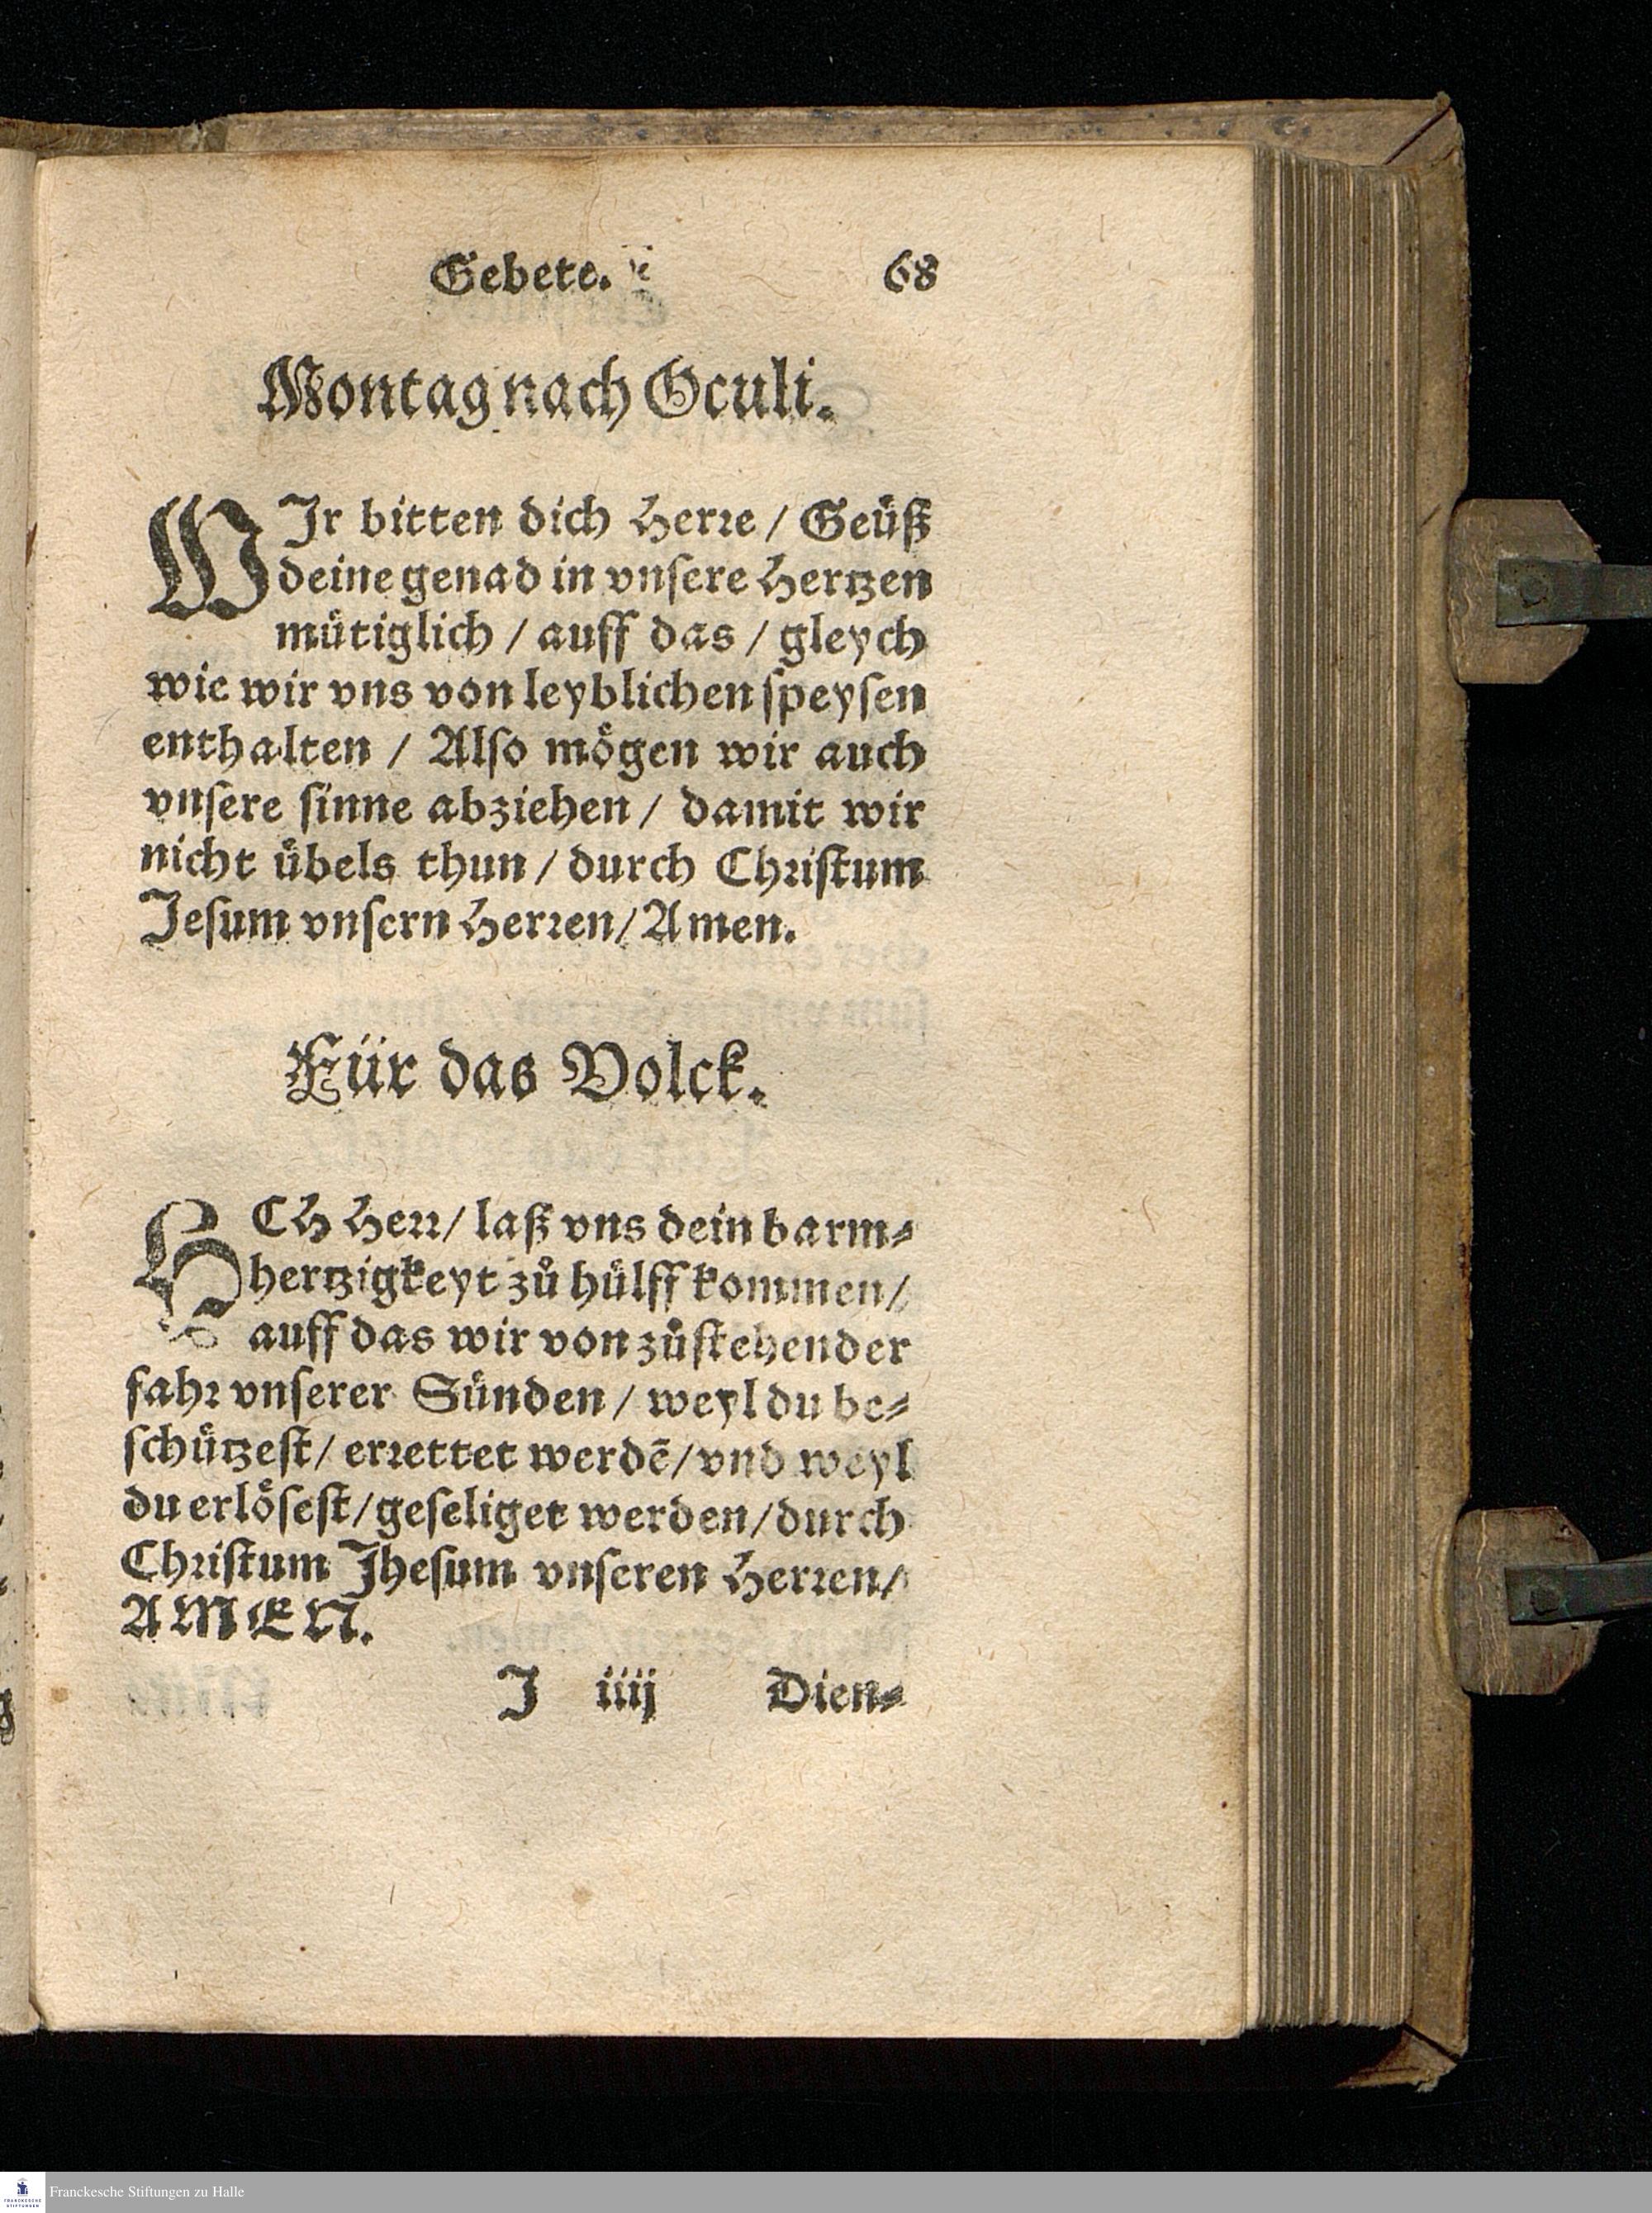 Gebete. 68
Montag nach Oculi.
WIr bitten dich Herꝛe / Geuͤß
deine genad in vnſere Hertzen
muͤtiglich / auff das / gleych
wie wir vns von leyblichen ſpeyſen
enthalten / Alſo moͤgen wir auch
vnſere ſinne abziehen / damit wir
nicht uͤbels thun / durch Chꝛiſtum
Jeſum vnſern Herꝛen / Amen.
Für das Volck.
ECH Herꝛ / laß vns dein barm⸗
hertzigkeyt zuͦ huͤlff kommen /
auff das wir von zuͦſtehender
fahꝛ vnſerer Suͤnden / weyl du be⸗
ſchuͤtzeſt / erꝛettet werdē / vnd weyl
du erloͤſeſt / geſeliget werden / durch
Chꝛiſtum Jheſum vnſeren Herꝛen /
AMEN.
J iiij Dien⸗
FRANCKESCHE STIFTUNGEN
Franckesche Stiftungen zu Halle